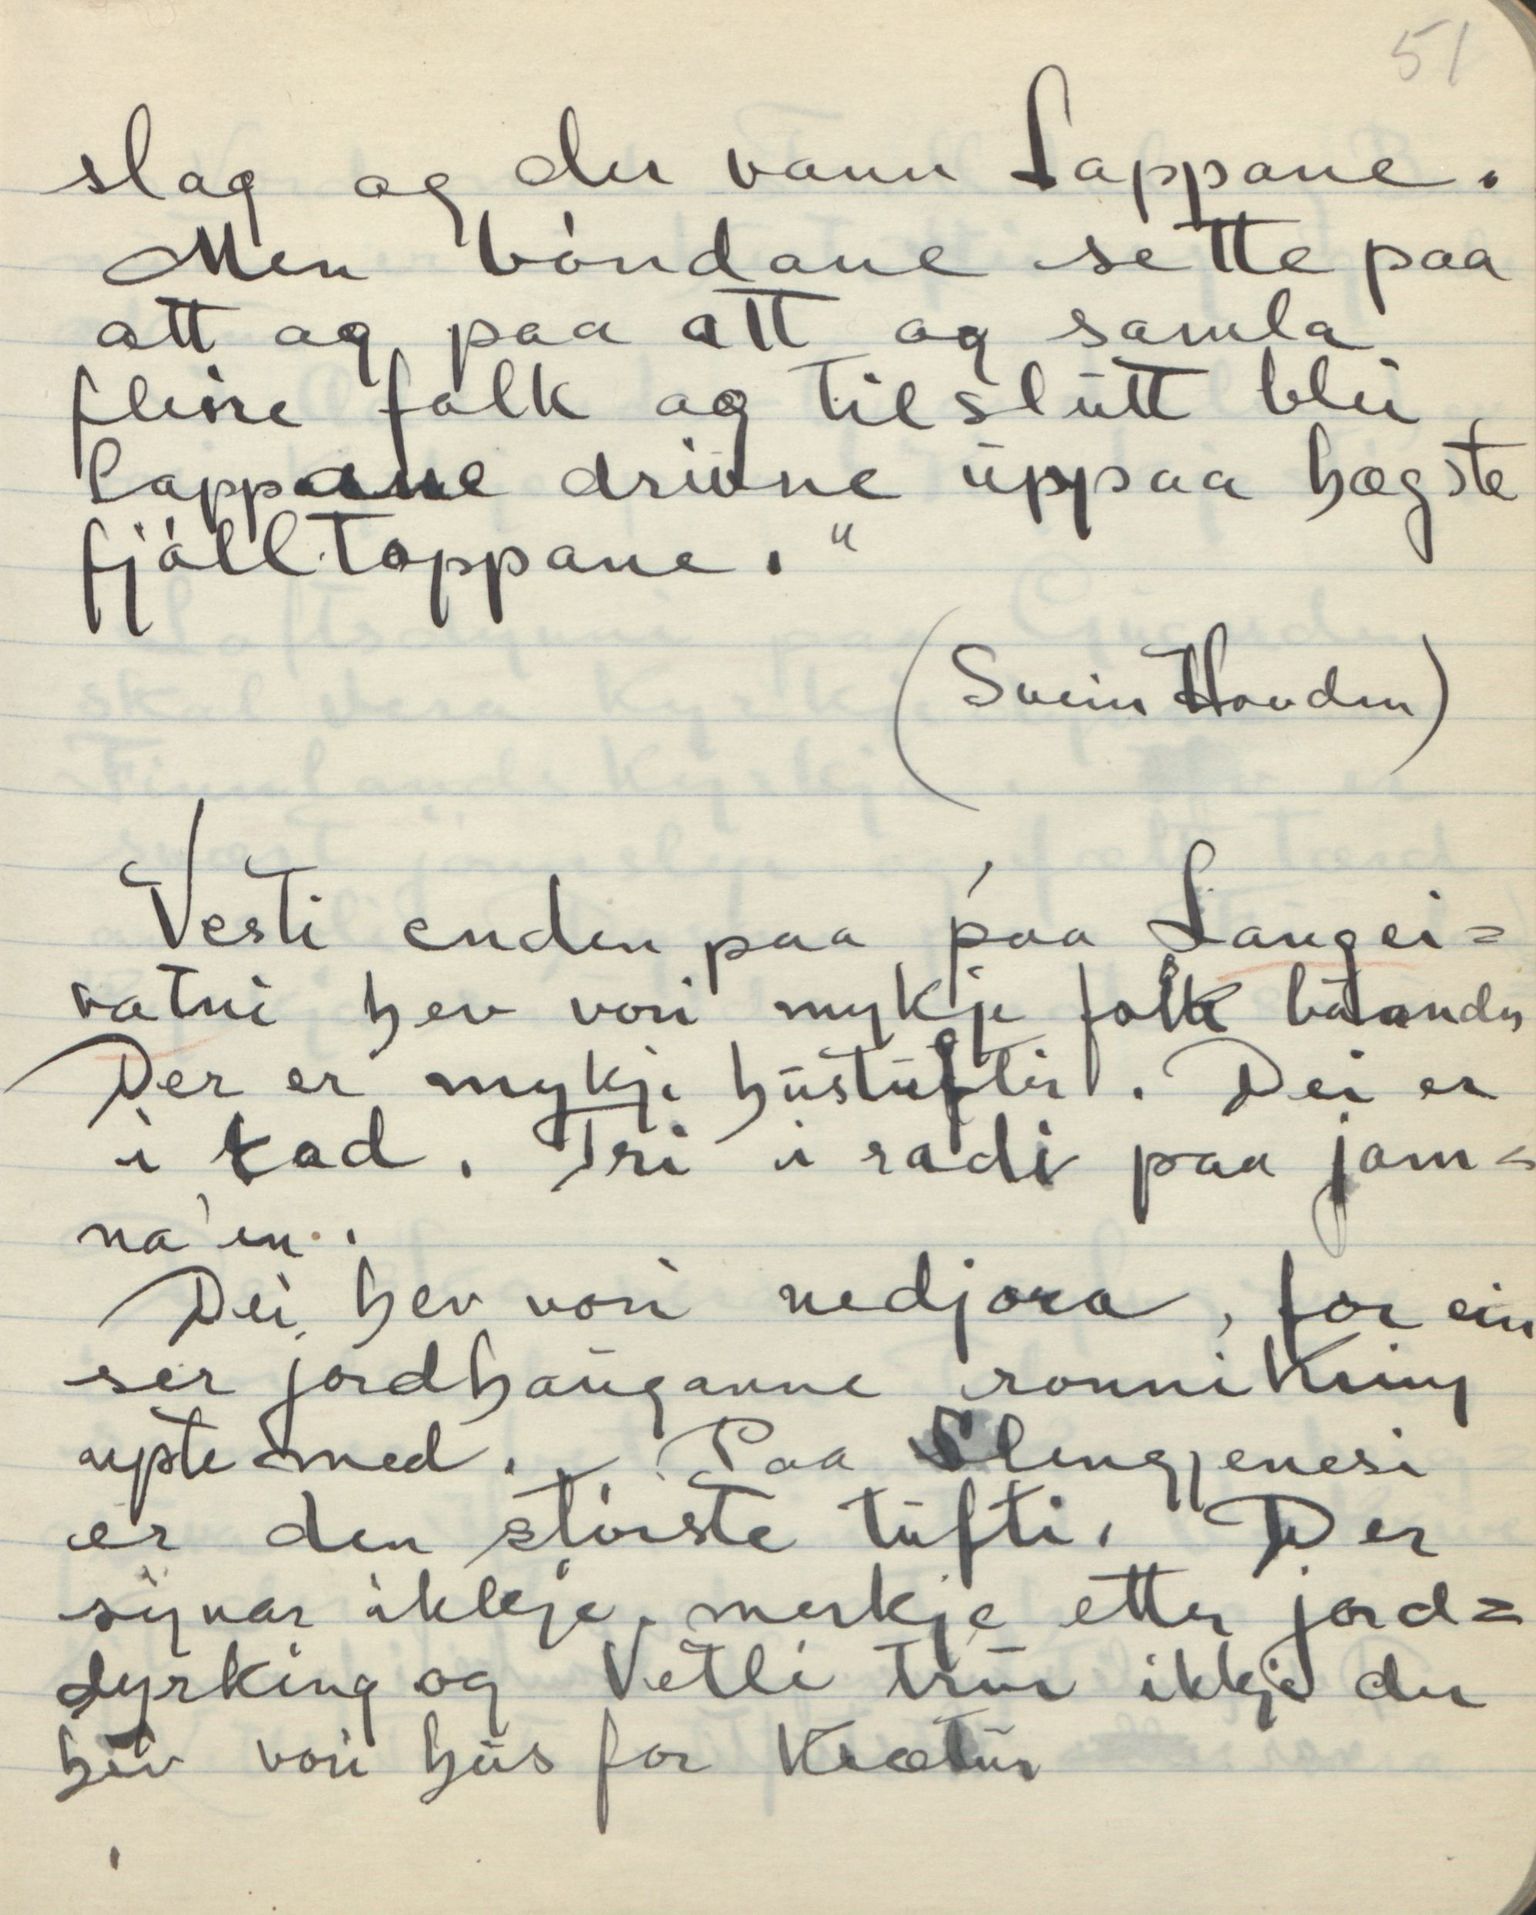 51
slag og der vann Lappane.
Men bóndane sette paa
att og paa att og samla
fleire folk og tilslutt blei
Lappane drivne uppaa högste
fjálltoppane."
(Svein Hovden)
Vesti enden paa paa Langei=
vatni hev vori mykje folk búandes
Der er mykje hústufter. Dei er
i rad. Tri i radi paa jam=
na'en.
Dei hev vori nedjora, for ein
ser jordhauganne ronnikring
upte med. Paa Slengjenesi
er den störste tufti. Der
synar ikkje merkje etter jord=
dyrking og Vetli trur ikkje der
hev vori hus for Krætur